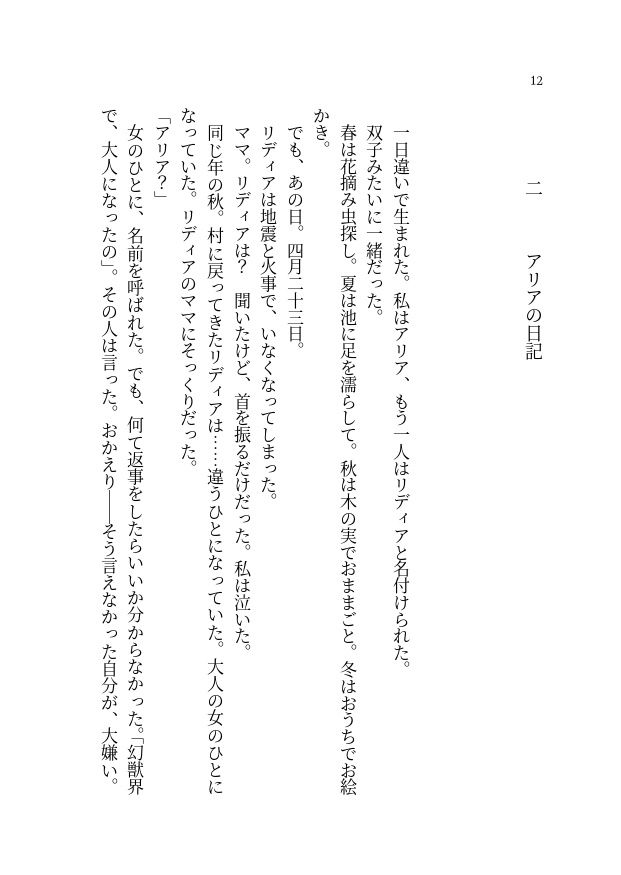 12
二　アリアの日記
一日違いで生まれた。私はアリア、もう一人はリディアと名付けられた。
双子みたいに一緒だった。
春は花摘み虫探し。夏は池に足を濡らして。秋は木の実でおままごと。冬はおうちでお絵
かき。
でも、あの日。四月二十三日。
リディアは地震と火事で、いなくなってしまった。
ママ。リディアは？　聞いたけど、首を振るだけだった。私は泣いた。
同じ年の秋。村に戻ってきたリディアは……違うひとになっていた。大人の女のひとに
なっていた。リディアのママにそっくりだった。
「アリア？」
女のひとに、名前を呼ばれた。でも、何て返事をしたらいいか分からなかった。「幻獣界
で、大人になったの」。その人は言った。おかえり――そう言えなかった自分が、大嫌い。